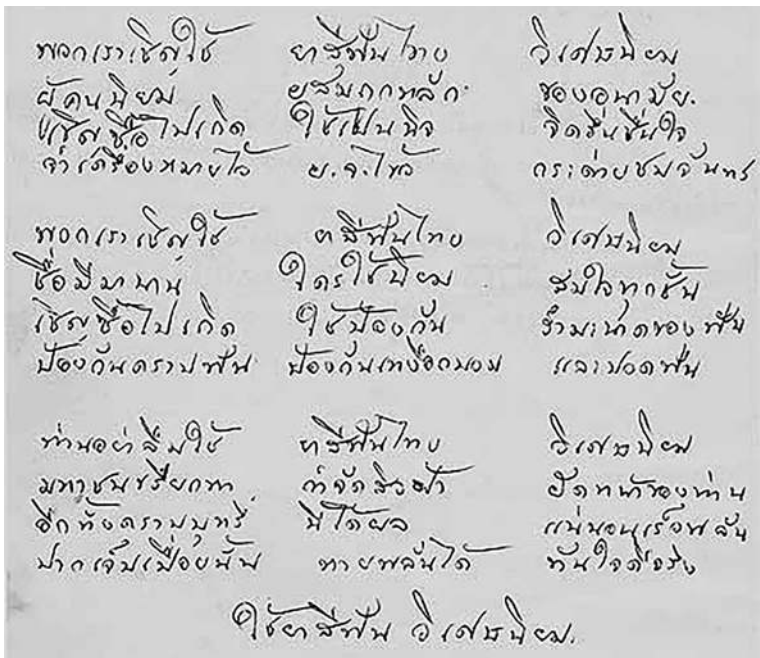 พวกเราเชิญใช้ ยาสีฟันไทย วิเศษนิยม
ผู้คนนิยม ผสมถูกหลัก ของอนามัย.
เชิญซื้อไปเถิด ใช้เป็นนิจ จิตชื่นชื่นใจ
จำเครื่องหมายไว้ ย.จ.ไหว้ กระต่ายชมจันทร์
พวกเราเชิญใช้ ยาสีฟันไทย วิเศษนิยม
ชื่อมีมานาน ใครใช้นิยม สมใจทุกชั้น
เชิญซื้อไปเถิด ใช้ป้องกัน รำมะนาดของฟัน
ป้องกันคราบฟัน ป้องกันเหงือกบวม และปวดฟัน
ท่านอย่าลืมใช้ ยาสีฟันไทย วิเศษนิยม
มหาชนเรียกหา กำจัดสิวฝ้า ผัดหน้าของท่าน
อีกทั้งคราบบุหรี่ นี่ได้ผล แน่นอนเร็วพลัน
ปากเจ็บเปื่อยนั้น หายพลันได้ ทันใจดีจริง
ใช้ยาสีฟัน วิเศษนิยม.